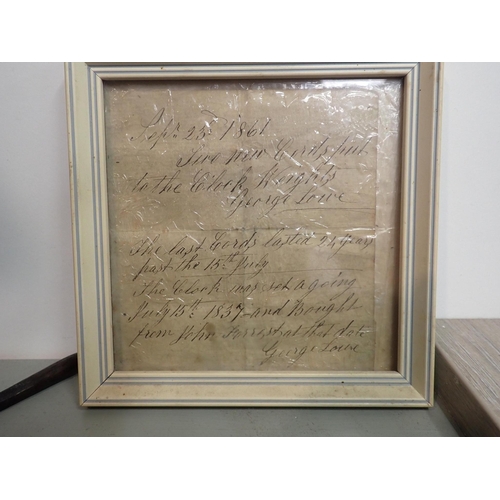 Sepr. 23rd 1861
Two new Cords put
to the Clock Weights
George Lowe
The last Cords lasted 24 years
past the 15th July
The Clock was set a going
July 15th 1837 and Bought
from John at that date
George Lowe